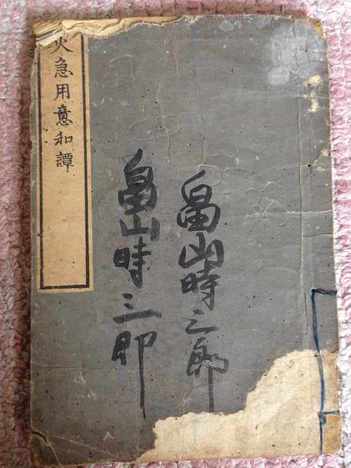 火急用意和譚
畠山時三郎
畠山時三郎